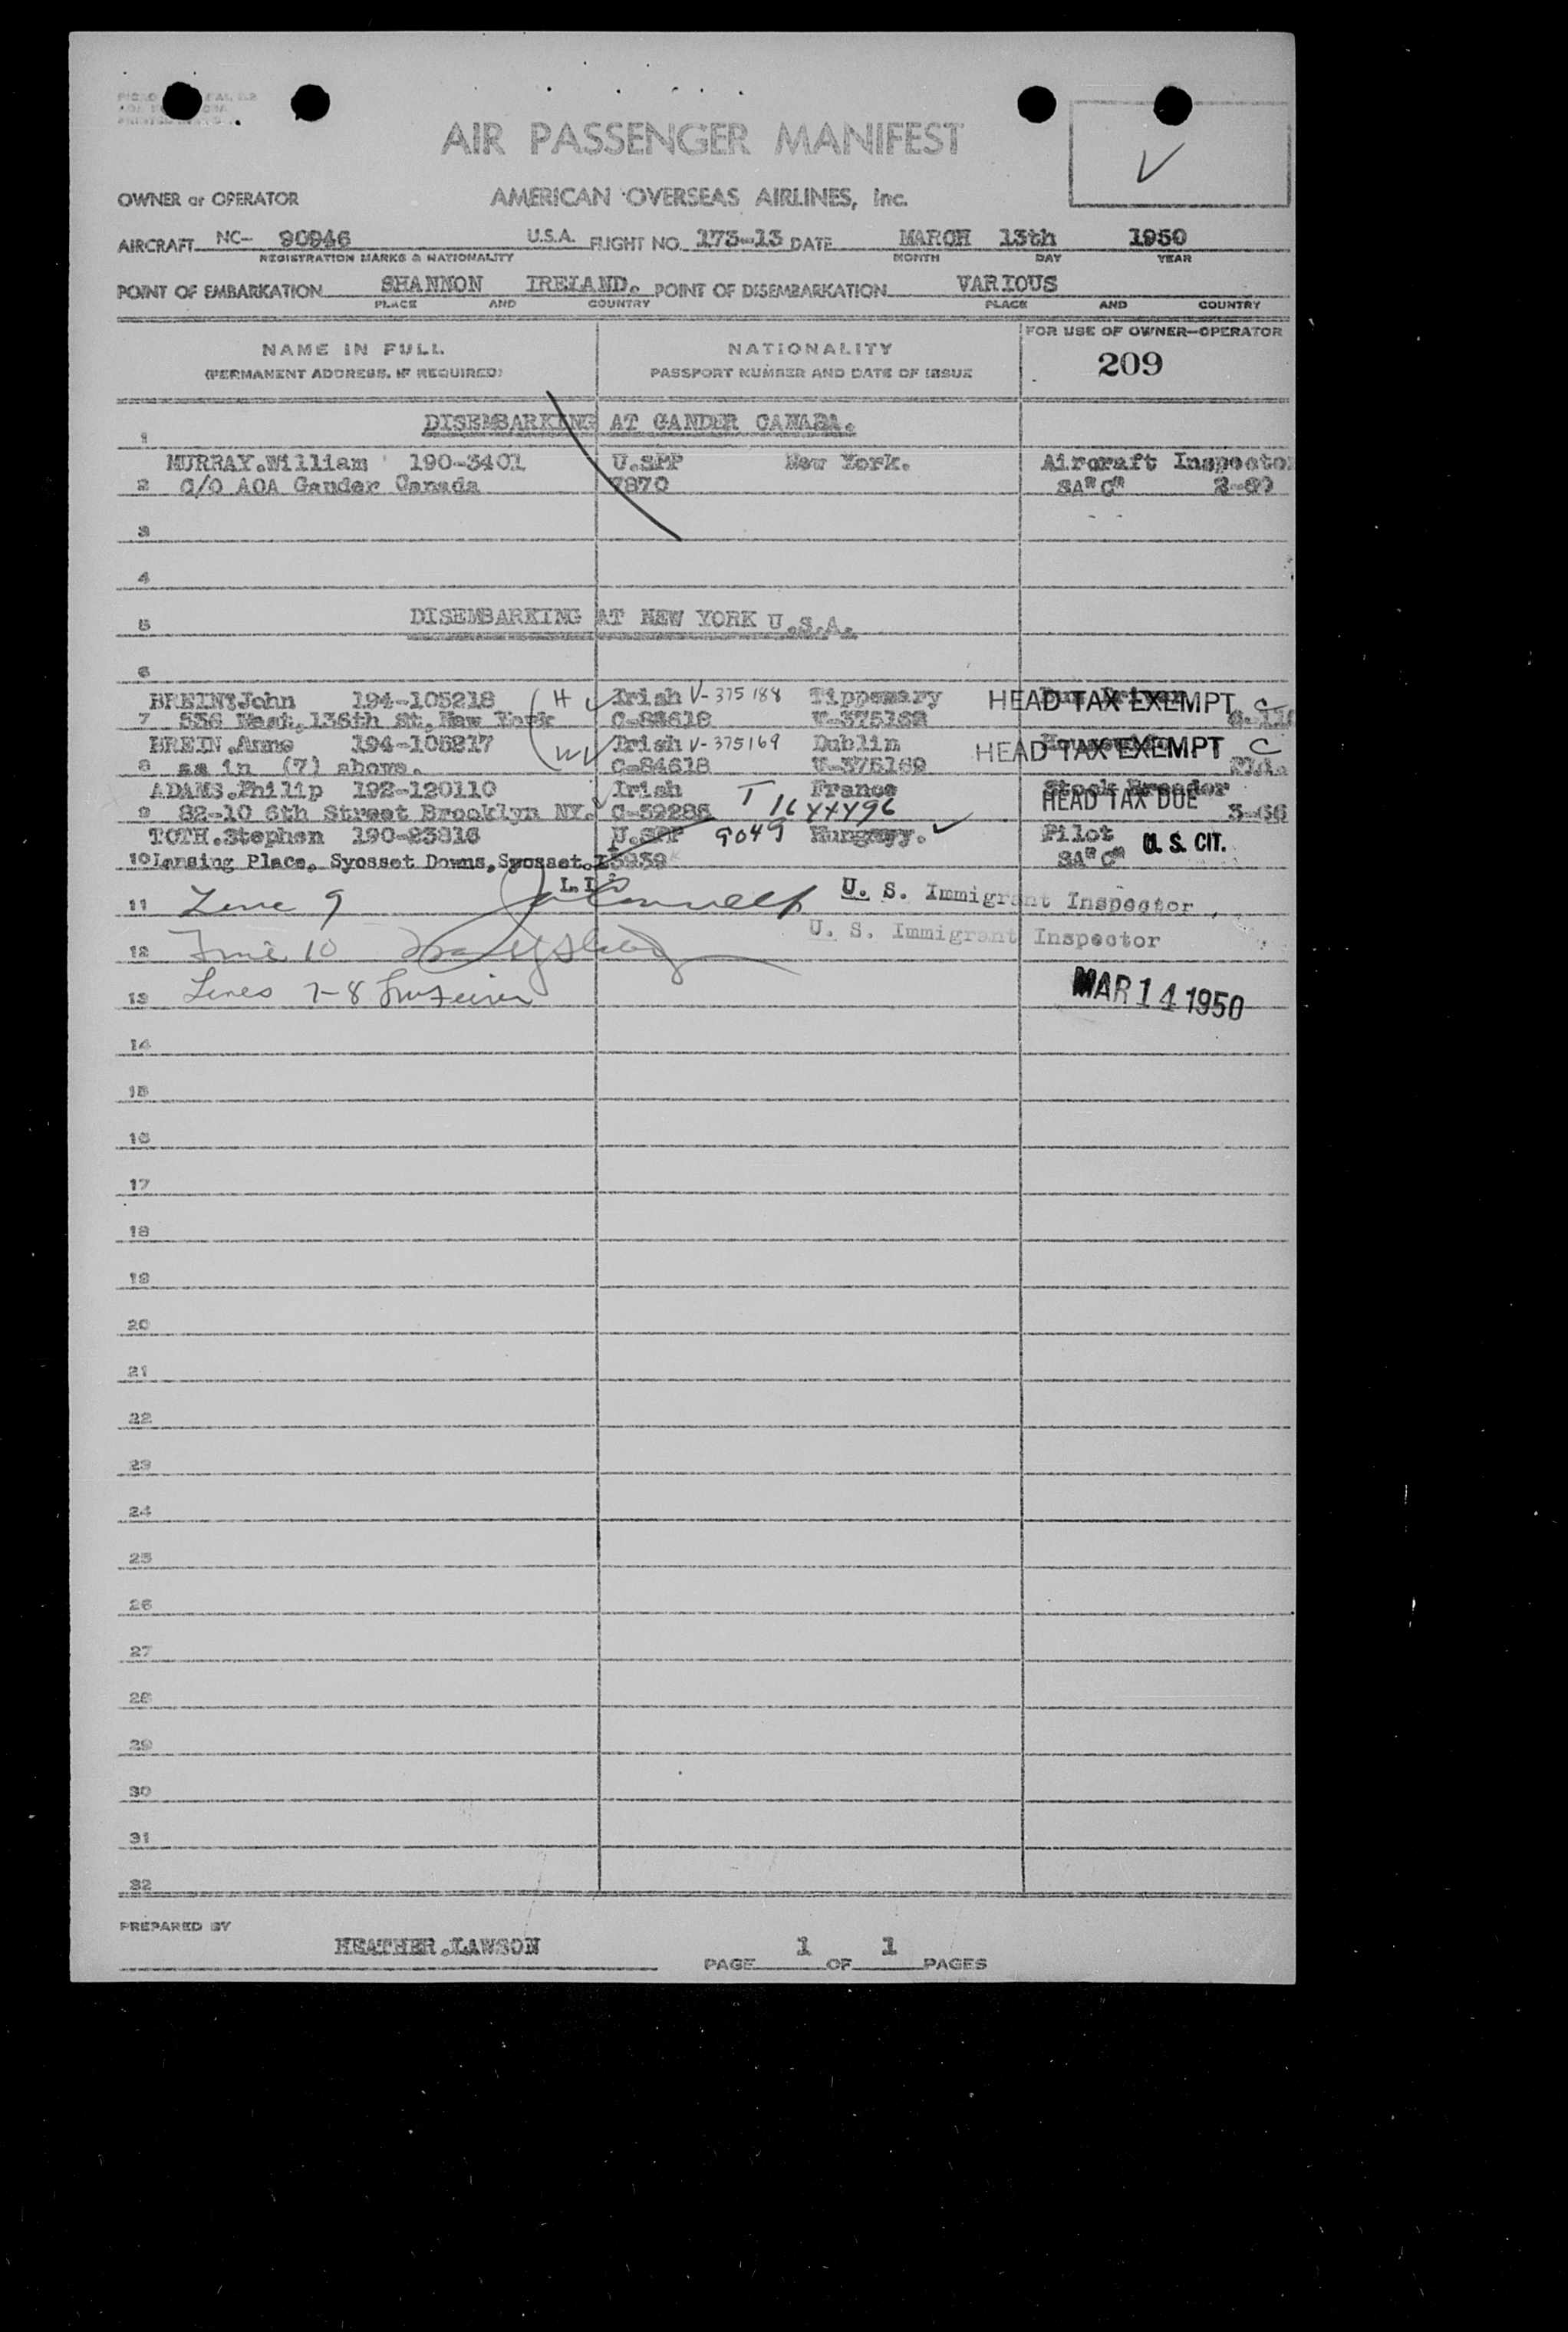 AIR PASSENGER MANIFEST
OWNER or OPERATOR AMERICAN OVERSEAS AIRLINES, Inc.
AIRCRAFT NC- 90946 U.S.A. FLIGHT NO. 173-13 DATE MARCH 13th 1950
REGISTRATION MARKS & NATIONALITY MONTH DAY YEAR
POINT OF EMBARKATION SHANNON IRELAND. POINT OF DISEMBARKATION VARIOUS
PLACE AND COUNTRY PLACE AND COUNTRY
FOR USE OF OWNER-OPERATOR
NAME IN FULL NATIONALITY 209
(PERMANENT ADDRESS, IF REQUIRED) PASSPORT NUMBER AND DATE OF ISSUE
1 DISEMBARKING AT GANDER CANADA.
MURRAY.William 190-3401 U.SPP New York. Aircraft Inspector
2 C/O AOA Gander Canada 7870 SA"C"
3
4
5 DISEMBARKING AT NEW YORK U.S.A.
6
BREIN.John 194-105218 H Irish V-375188 Tipperary HEAD TAX EXEMPT C
7 536 West, 136th St, New York C-84618
BREIN.Anne 194-105217 W Irish V-375169 Dublin HEAD TAX EXEMPT C
8 as in (7) above. C-84618 V-375169
ADAMS.Philip 192-120110 Irish T 1644496 France Stock Breeder
9 82-10 6th Street Brooklyn NY. C-39286 HEAD TAX DUE 3-66
TOTH.Stephen 190-23816 U.SPP 9049 Hungary. Pilot U.S. CIT.
10 Lansing Place, Syosset Downs, Syosset. SA"C"
L.I.
11 Line 9 U. S. Immigrant Inspector
12 Line 10 U. S. Immigrant Inspector
13 Lines 7-8 MAR 14 1950
14
15
16
17
18
19
20
21
22
23
24
25
26
27
28
29
30
31
32
PREPARED BY
HEATHER.LAWSON
PAGE 1 OF 1 PAGES